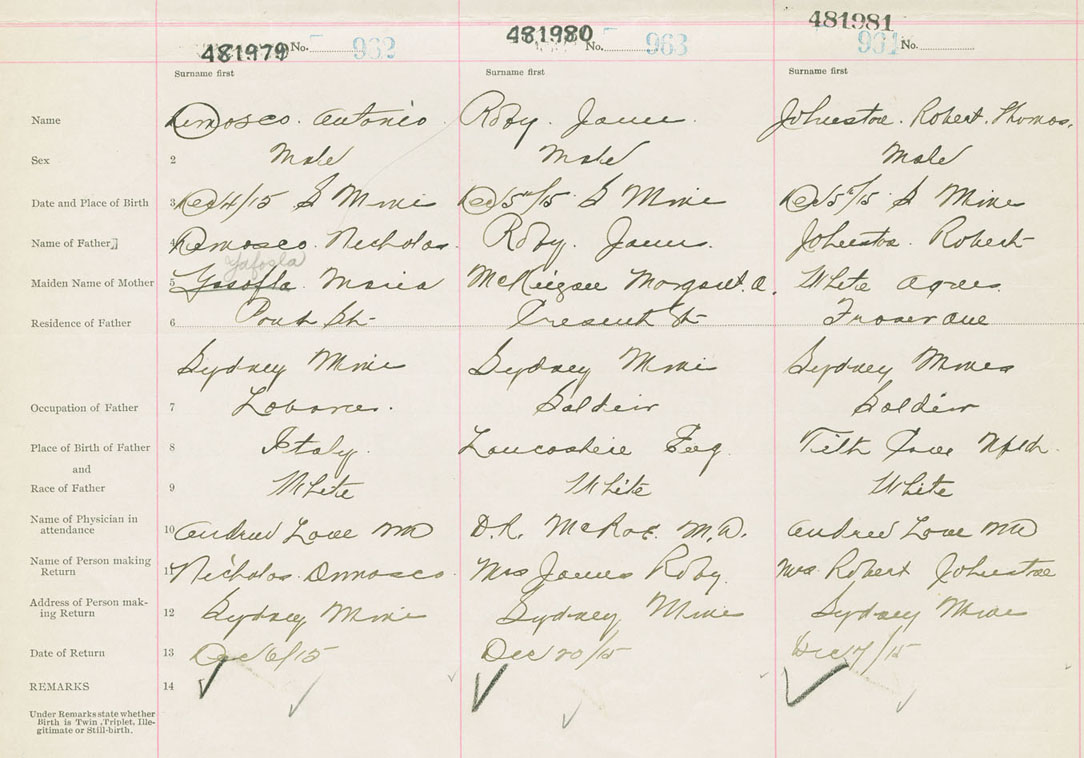 481979 No. 962 481980 No. 963 481981 No.
Surname first Surname first Surname first
Name Antonio Roby. James Johnstone. Robert. Thomas.
Sex 2 Male Male Male
Date and Place of Birth 3 Dec 4/15 S Mines Dec 5/15 S Mines Dec 5/15 S Mines
Name of Father 4 Nicholas. Roby. James. Johnstone. Robert
Maiden Name of Mother 5 Maria Margaret. A. White Agnes
Residence of Father 6 Pont St Cresent St Fraser Ave
Sydney Mines Sydney Mines Sydney Mines
Occupation of Father 7 Laborer. Soldier Soldier
Place of Birth of Father 8 Italy. Lancashire Eng Tilt Cove Nfld.
and
Race of Father 9 White White White
Name of Physician in
attendance 10 Andrew Love MD D.K. McRae. M.D. Andrew Love MD
Name of Person making
Return 11 Nicholas. Mrs James Roby. Mrs. Robert Johnstone
Address of Person mak-
ing Return 12 Sydney Mines Sydney Mines Sydney Mines
Date of Return 13 Dec 6/15 Dec 20/15 Dec 7/15
REMARKS 14
Under Remarks state whether
Birth is Twin, Triplet, Ille-
gitimate or Still-birth.